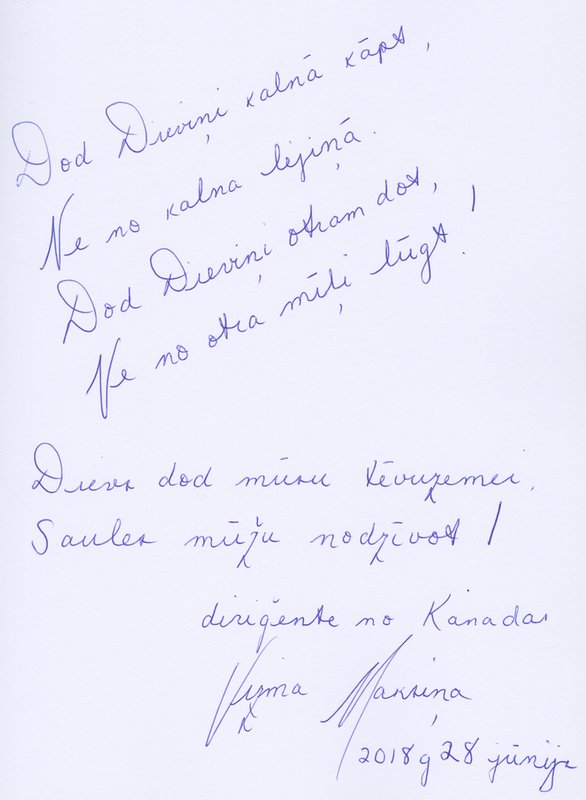 Dod Dieviņi kalnā kāpt,
Ne no kalna lejiņā.
Dod Dieviņi otram dot,
Ne no otra mīļi lūgt!
Dievs dod mūsu tēvuzemei,
Saules mūžu nodzīvot!
diriģente no Kanadas
Vizma Maksiņa
2018 g 28 jūnijs